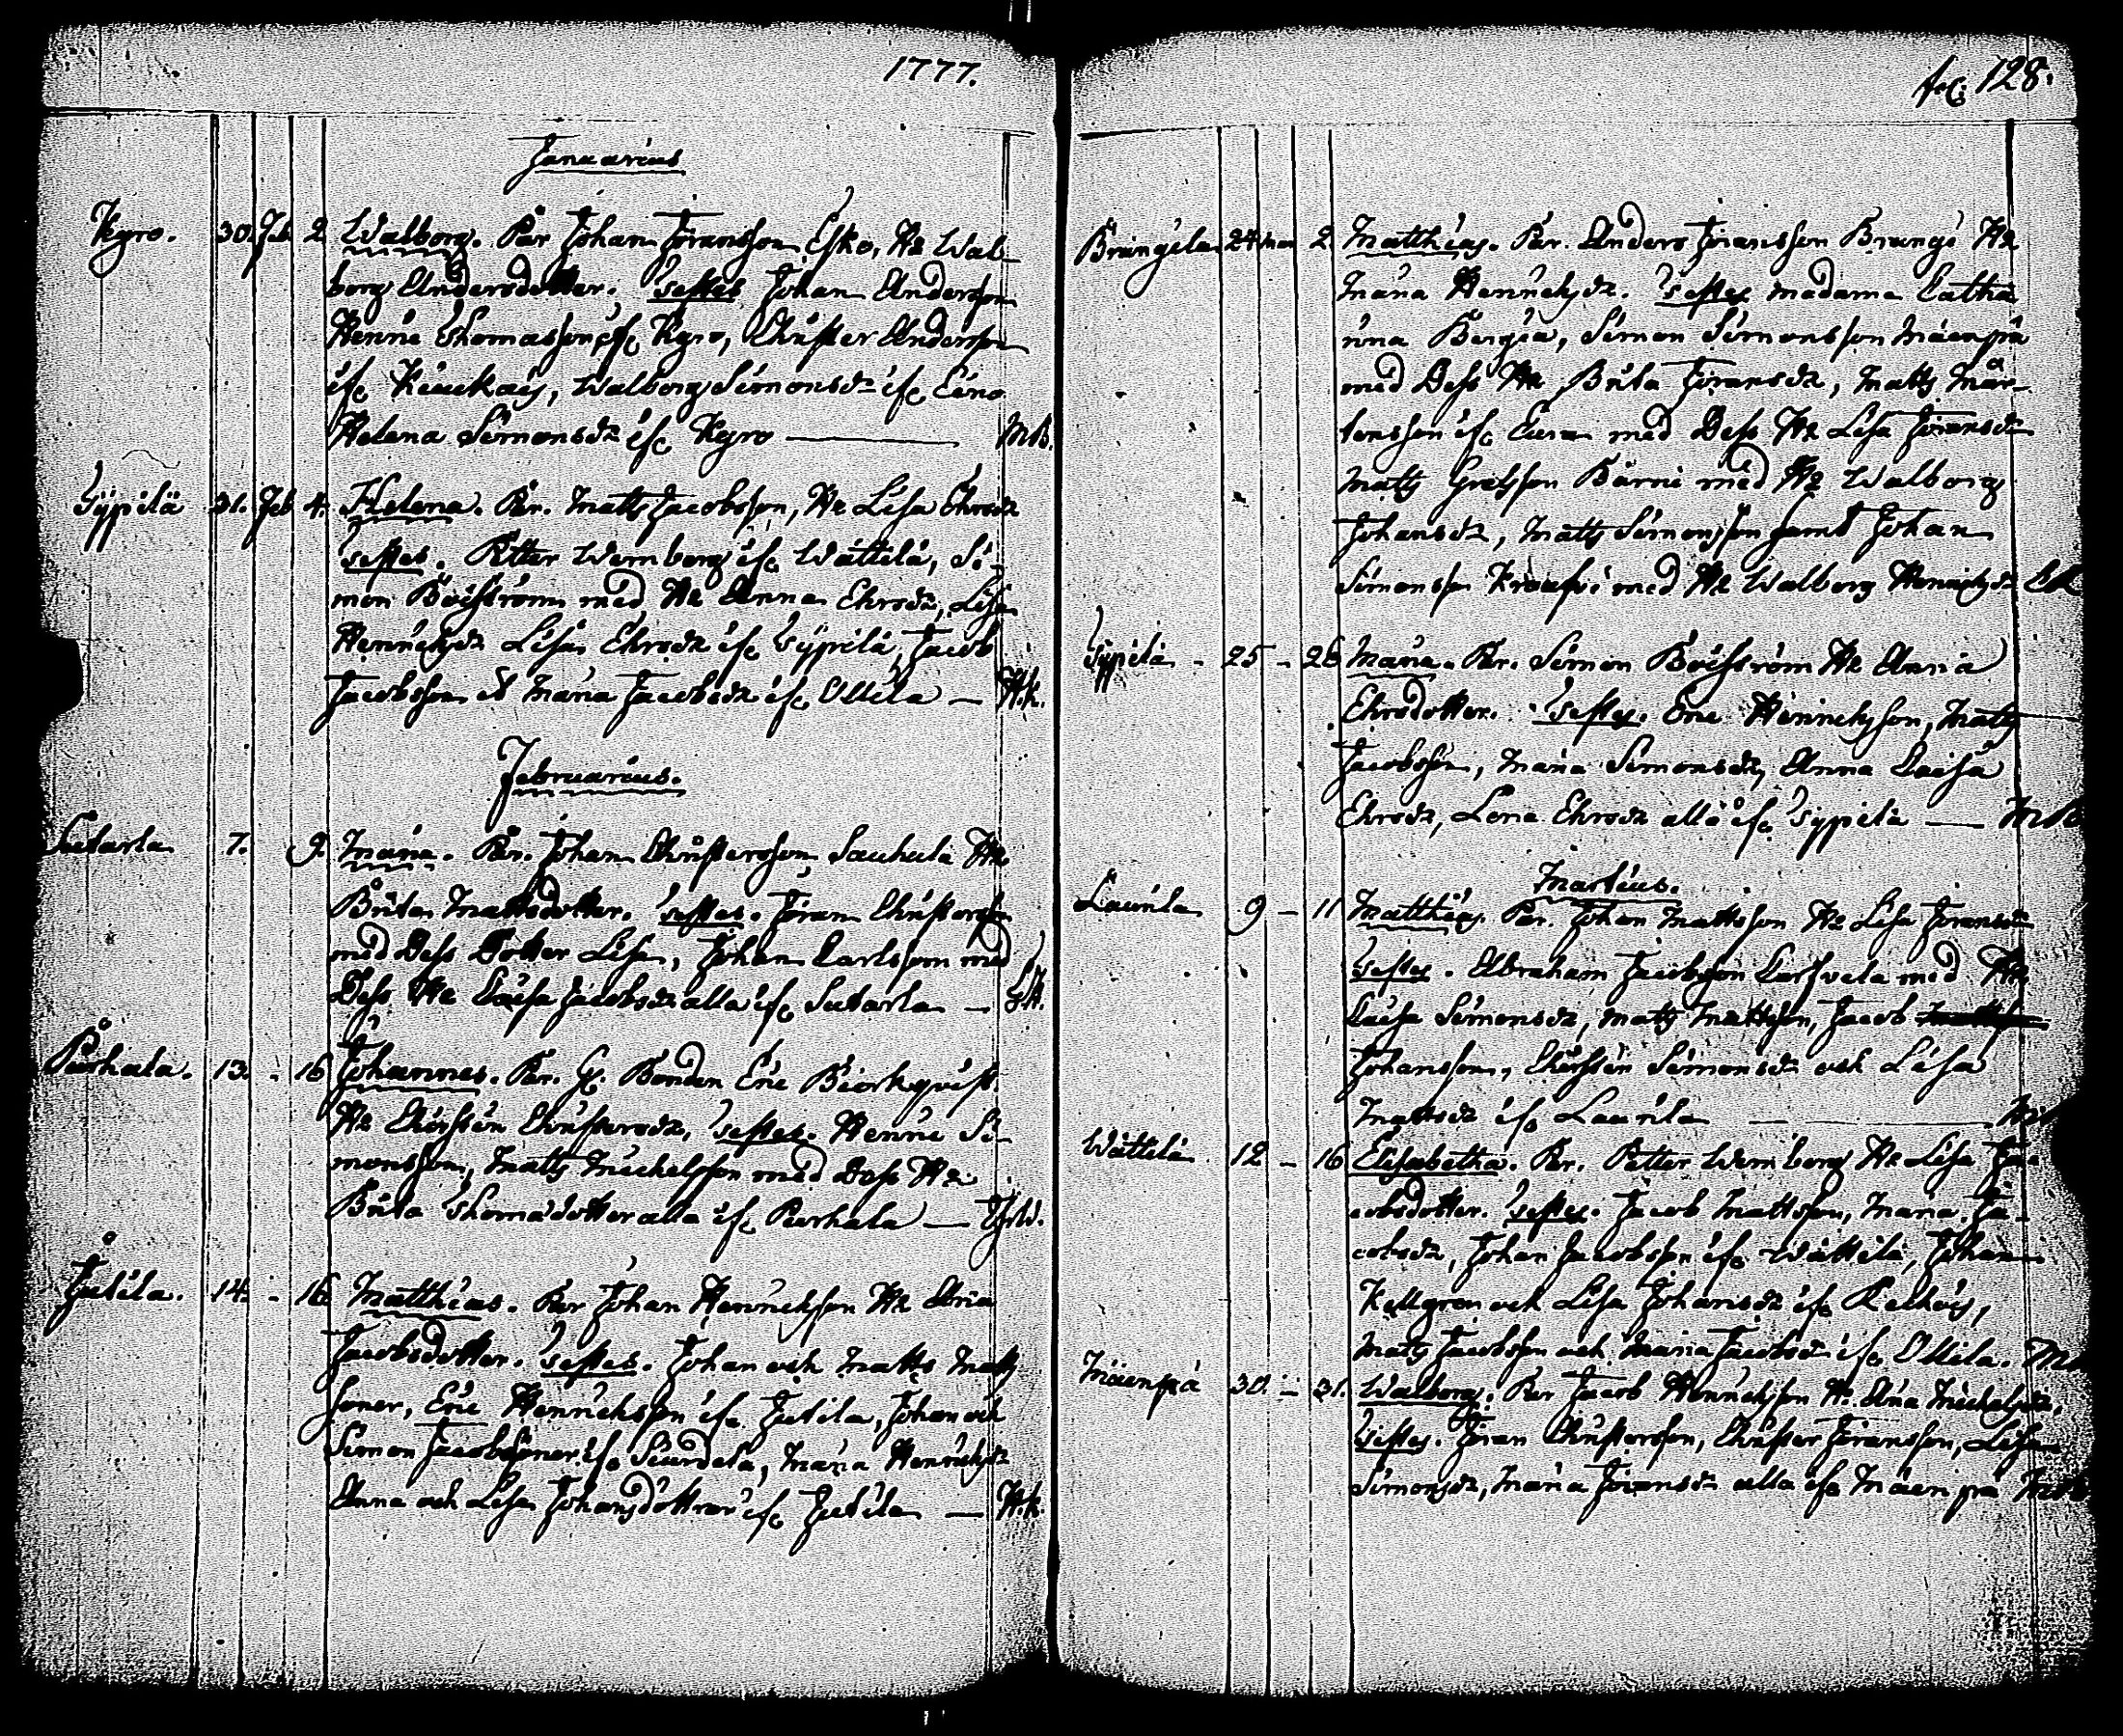 1777.
Januarius
Kyro. 30. Feb 2. Walborg. Par Johan Jöransson Esko, Hr Wal-
borg Andersdotter. Testes Johan Andersson
Henric Thomasson ifr. Kyro, Christer Andersson
ifr. Kiuckais, Walborg Simonsdr ifr. Eino
Helena Simonsdr ifr. Kyro — MB.
Yÿpilä 31. Feb 4. Helena. Par. Matts Jacobsson, Hr Lisa Ehrsdr
Testes. Petter Wernberg ifr. Wättilä, Si-
mon Böisström med Hr Anna Ehrsdr, Lisa
Henrichsdr Lisa Ehrsdr ifr. Yÿpilä, Jacob
Jacobsson et Maria Jacobsdr ifr. Ollila — H.k.
Februarius.
Sutarla 7. 9. Maria. Par. Johan Christersson Sauhula Hr.
Brita Mattsdotter. Testes. Jöran Christersson
med Dess Dotter Lisa, Johan Carlsson med
Dess Hr Caisa Jacobsdr alla ifr. Sutarla —
Perhala. 13. - 16 Johannes. Par. Gl. Bonden Eric Biorkqvist.
Hr Chirstin Christersdr. Testes. Henric Si-
monsson, Matts Michelsson med Dess Hr
Brita Thomædotter alla ifr. Perhala —
Jutila. 14. - 16. Matthias. Par Johan Henrichsson Hr Ania
Jacobsdotter. Testes. Johan och Matts Matts
soner, Eric Henrichsson ifr. Jutila, Johan och
Simon Jacobsöner ifr. Siurdela, Maria Henrichsdr
Anna och Lisa Johansdöttrar ifr. Jutila — H.k.
fol. 128.
Brungila 24 2 Matthias. Par. Anders Jöransson Brungi Hr
Maria Henrichsdr. Testes Madame Catha
rina Bergia, Simon Simonsson Mäenpä
med Dess Hr Brita Jöransdr, Matts Mår-
tensson ifr. Eura med Dess Hr Lisa Jöransdr
Matts Grelsson Bärni med Hr Walborg
Johansdr, Matts Simonsson samt Johan
Simonsson med Hr Walborg Henrichsdr
Yÿpilä - 25 - 26 Maria. Par. Simon Böisström Hr Anna
Ehrsdotter. Testes. Eric Henrichsson, Matts
Jacobsson, Maria Simonsdr, Anna Caisa
Ehrsdr, Lena Ehrsdr alla ifr. Yÿpilä —
Martius.
Laurila 9 - 11 Matthias. Par. Johan Mattsson Hr Lisa Jöransdr
Testes. Abraham Jacobsson med Hr
Caisa Simonsdr, Matts Mattsson, Jacob
Johansson, Chirstin Simonsdr och Lisa
Mattsdr ifr. Laurila —
Wättilä 12 - 16 Elisabetha. Par. Petter Wernberg Hr Lisa Ja-
cobsdotter. Testes. Jacob Mattsson, Maria Ja-
cobsdr, Johan Jacobsson ifr. Wättilä, Johan
Kellgren och Lisa Johansdr ifr.
Matts Jacobsson och Maria Jacobsdr ifr. Ollila.
Mäenpä 30. - 31. Walborg. Par Jacob Henrichsson Hr. Ana Michelsdr.
Testes. Jöran Christersson, Christer Jöransson, Lisa
Simonsdr, Maria Jöransdr alla ifr. Mäenpä